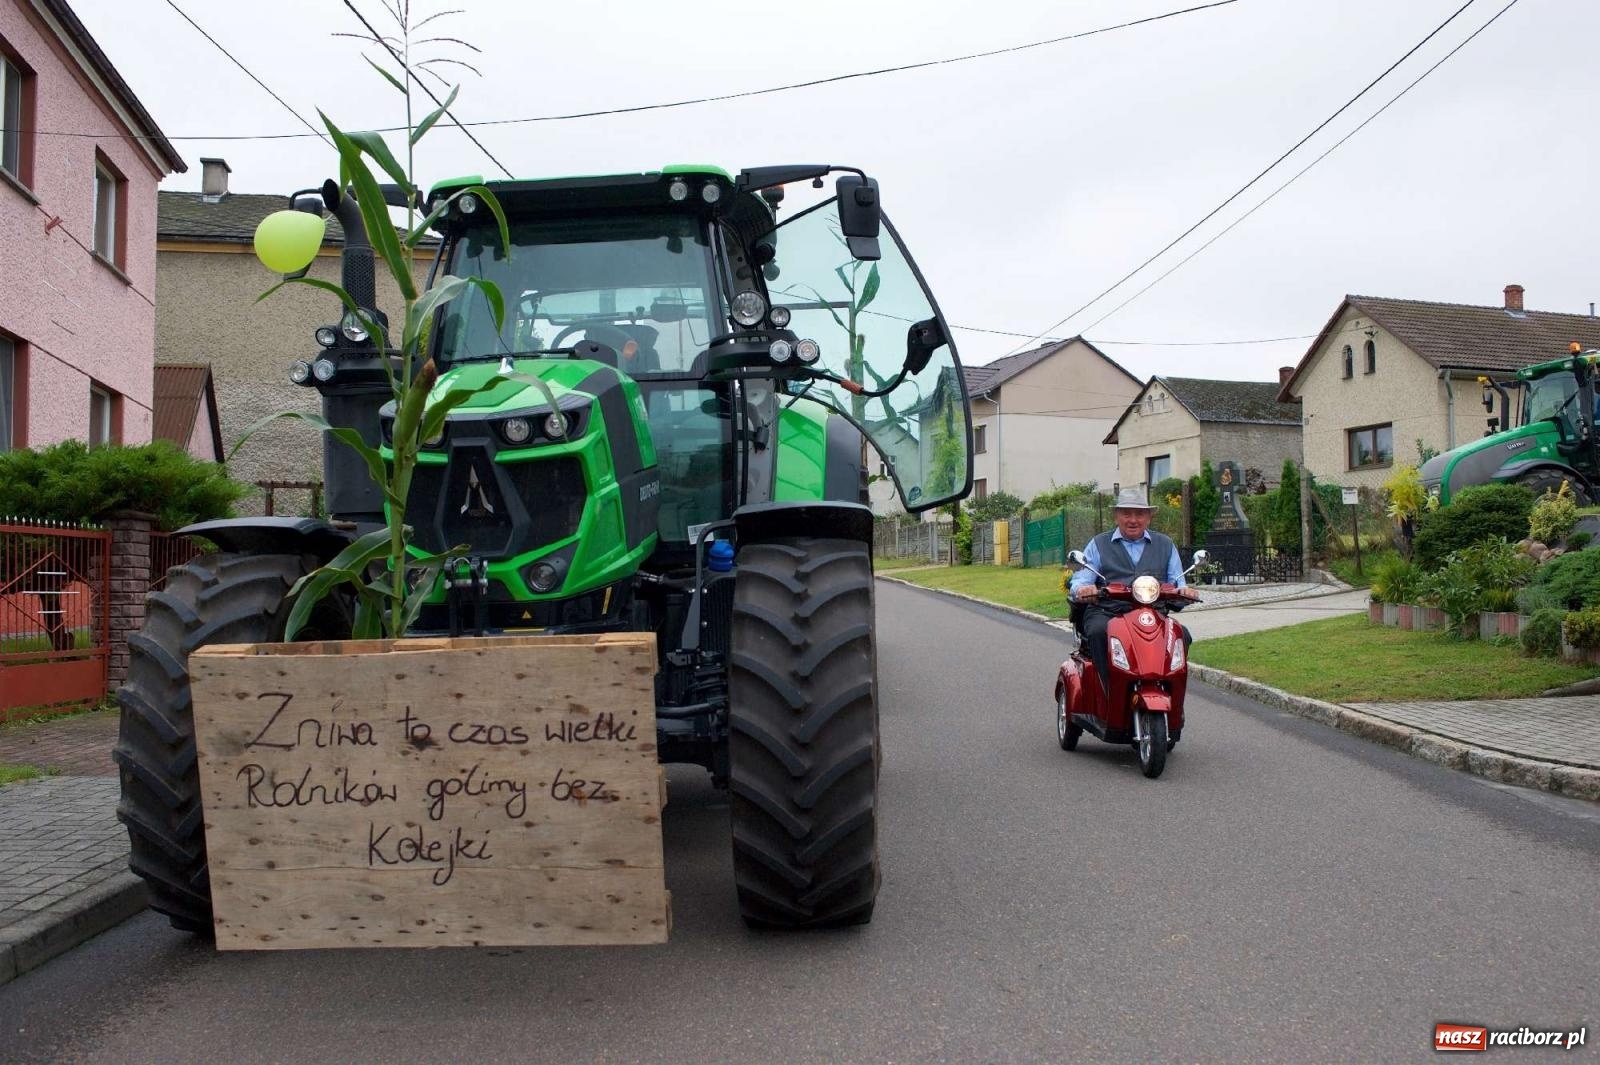 Żniwa to czas wielki
Rolników golimy bez
Kolejki
DEUTZ-FAHR
nasz raciborz.pl